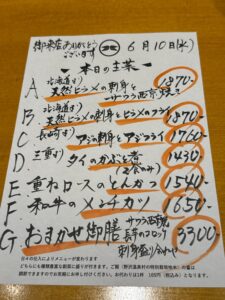 御来店ありがとう
ございます
6月10日(水)
本日の主菜
A. 北海道産
天然ヒラメの刺身と
サワラ西京焼き 1870-
B. 北海道産
天然ヒラメの刺身とヒラメのフライ 1870-
C. 長崎産
アジの刺身とアジフライ 1760-
D. 三重産
タイのかぶと煮 1430-
E 重ねロースのとんかつ 1540-
F. 和牛のメンチカツ 1650-
G. おまかせ御膳 サワラ西焼
刺身盛り合わせ 3300-
日々の仕入によりメニューが変わります